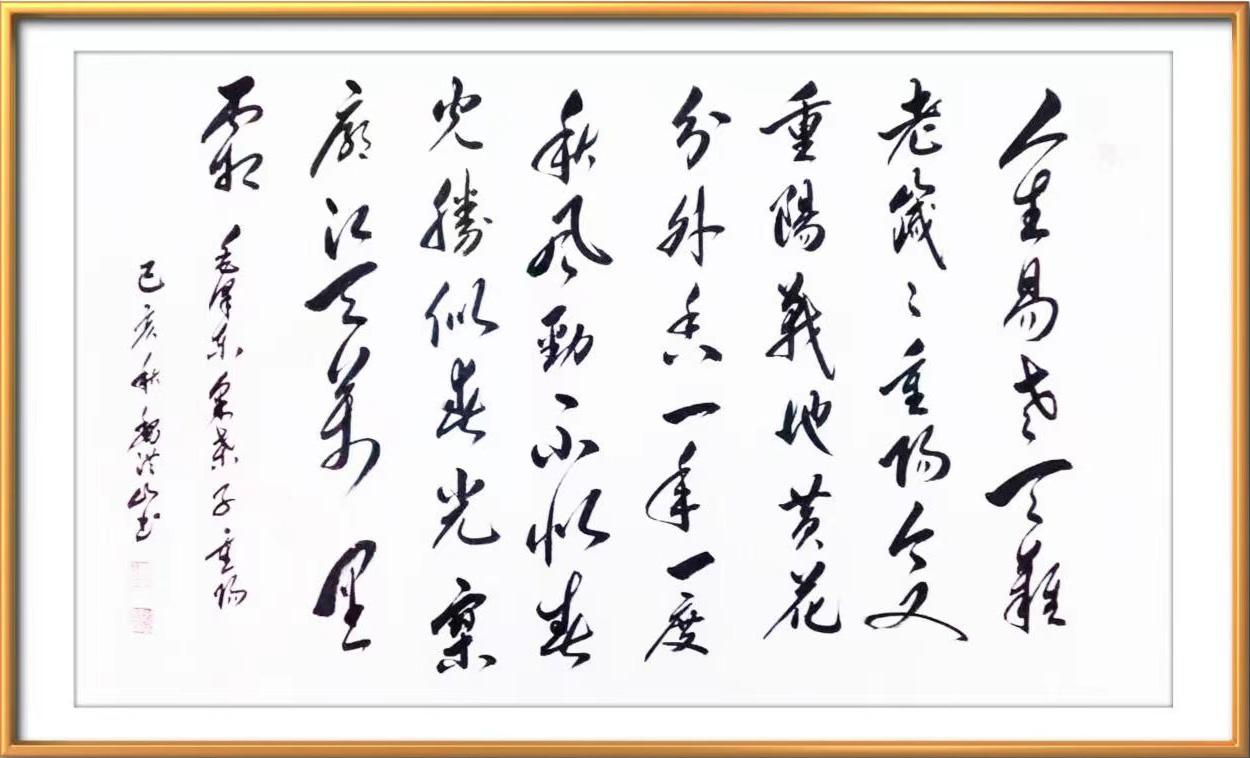 人生易老天難
老歲々重阳今又
重陽戰地黄花
分外香一年一度
秋风勁不似春
光勝似春光寥
廓江天萬里
霜 毛泽东采桑子重阳
己亥秋魏洪山书